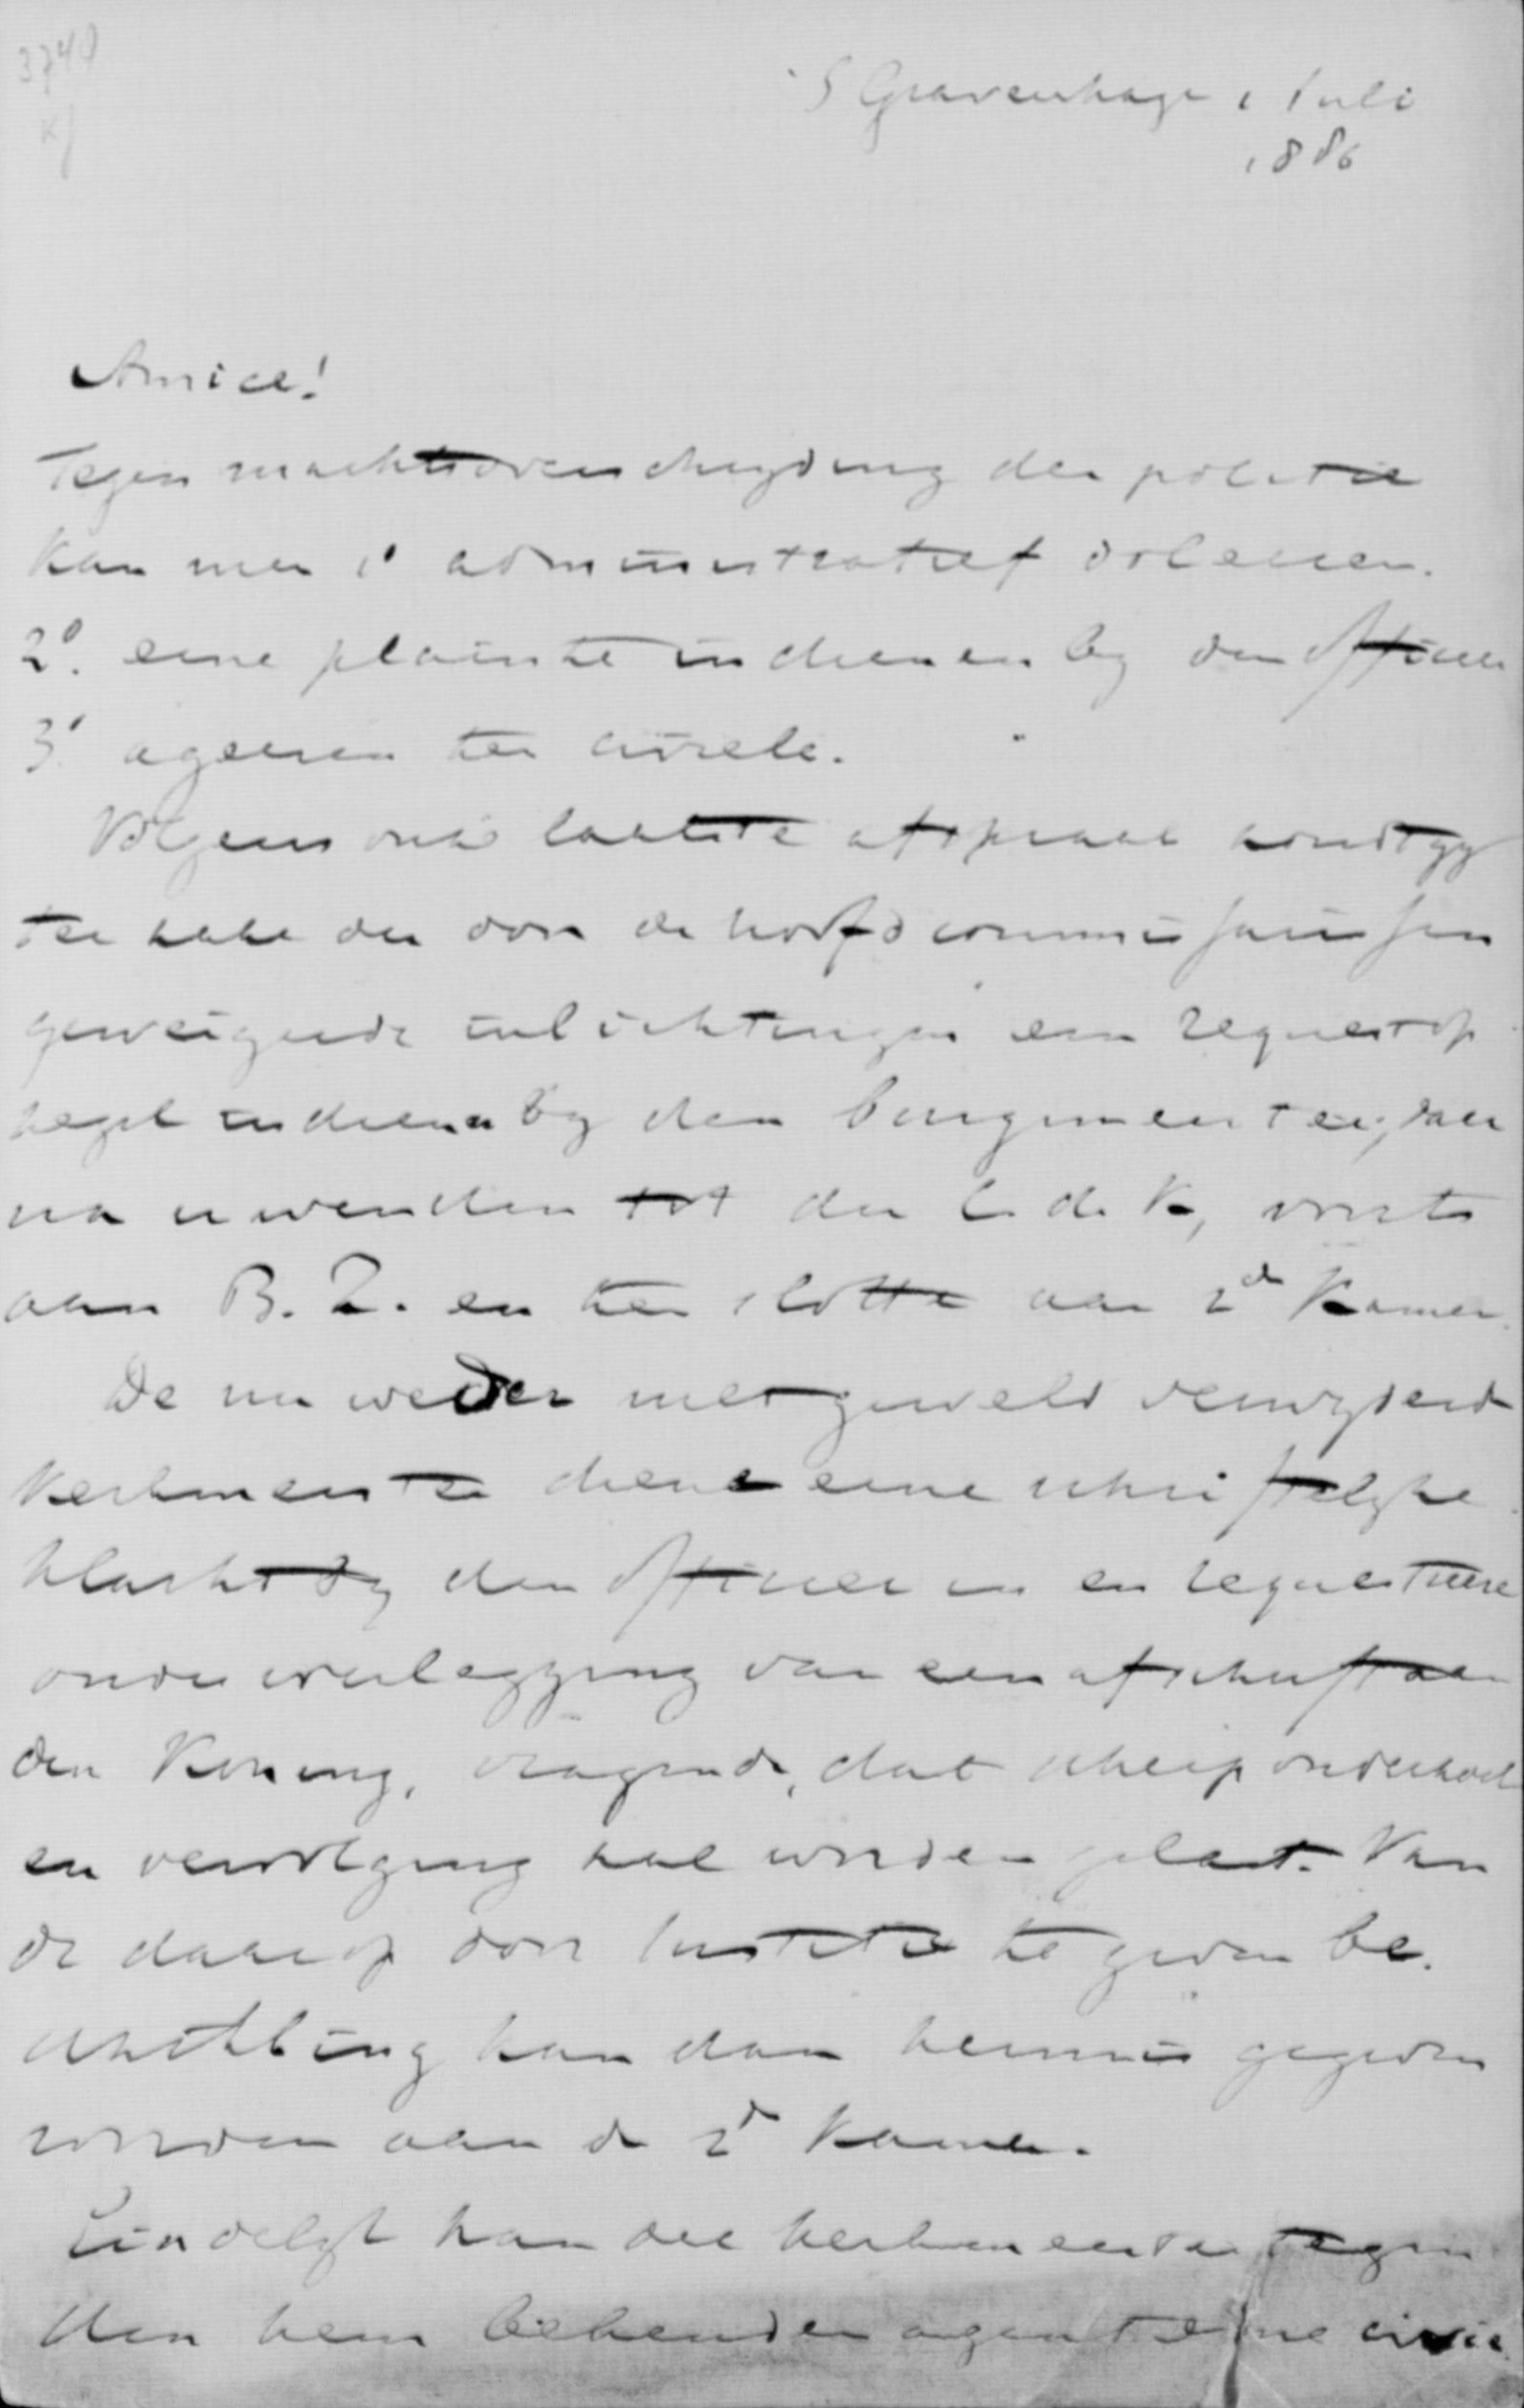 3740
K)
'S Gravenhage 1 Juli
1886
Amice!
Tegen machtsoverschrijding der politie
kan men 1o administratief doleeren.
2o. eene plainte indienen bij den officier
3o ageeren ter civiele.
Volgens onze laatste afspraak zoudt gij
ter zake der door de hoofdcommissarissen
geweigerde inlichtingen een request op
zegel indienen bij den burgemeester, daar
na u wenden tot den C. d. K, voorts
aan B. Z. en ten slotte aan 2de Kamer.
De nu weder met geweld verwijderde
kerkmeester diene eene schriftelijke
klacht bij den officier in en requestreere
onder overlegging van een afschrift aan
den Koning, vragende, dat scherp onderzoek
en vervolging zal worden gelast. Van
de daarop door Justitie te geven be-
schikking kan dan kennis gegeven
worden aan de 2de Kamer.
Eindelijk kan die kerkmeester tegen
den hem bekenden agent eene civie